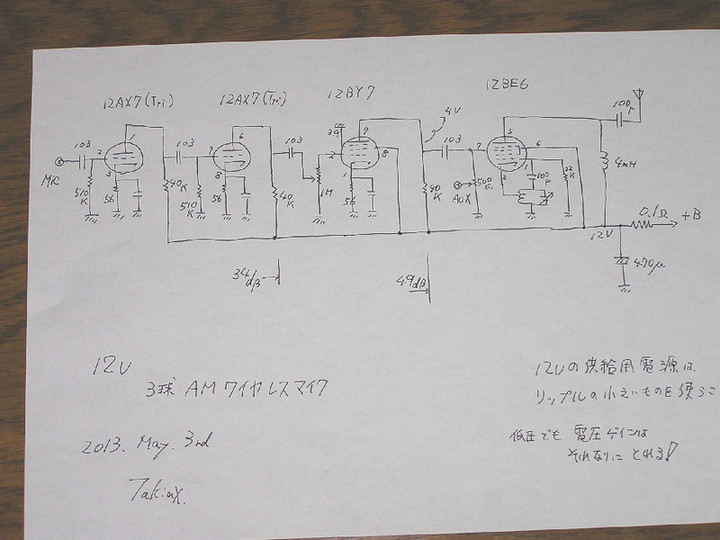 12AX7 (Tri)
12AX7 (Tri)
12BY7
12BE6
100p
4V
103
103
103
103
MIC
510K
56
40K
510K
56
40K
1M
56
40K
500K
AUX
100p
22K
4mH
12V
0.1Ω
+B
470μ
34dB
49dB
12V
3球 AM ワイヤレスマイク
2013. May. 3rd
12Vの供給用電源は、
リップルの小さいものを使うこ
低圧でも 電圧ゲインは
それなりに とれる!